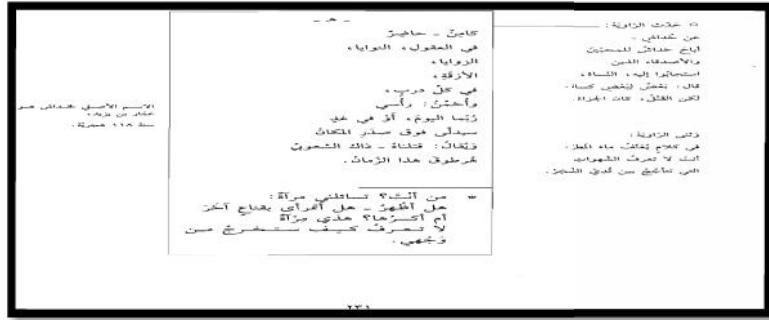 □ حدّث الرّاوية:
عن خداشٍ -
أباحَ خداشٌ للمحبّينَ
والأصدقاء الذين
استجابوا إليه، النساءَ،
قال: بَعْضٌ لِبَعْضٍ كساءٌ.
لكن القَتْلَ، كانَ الجزاءَ.
وَثنّى الرّاوية:
في كلامٍ يُغلّفُ ماء المطرْ:
أنتَ لا تعرفُ الشّهواتِ
التي تتأجّجُ من ثَديِ الشّجَرْ.
- هـ -
كامِنٌ - حاضِرٌ
في العقول، النوايا،
الزوايا،
الأزقّةِ،
في كلّ دربٍ،
وأُحسّنُ: رأسي
رُبّما اليومَ، أوْ في غدٍ
سيدلّى فوق صدرِ المكانْ
وَيُقالُ: قتلناهُ - ذاك الشعوبيَّ
هُرطوقَ هذا الزّمانْ.
* من أنْتَ؟ تسائلني مرآةٌ:
هل أظهرُ - هل أتمرأى بقناعٍ آخرَ
أم أكسرُها؟ هذي مِرْآةٌ
لا تعرفُ كيف ستخرجُ من
وَجْهي.
الاسم الأصلي لخداش هو
عمّار بن يزيد،
سنة ١١٨ هجريّة.
٢٣١